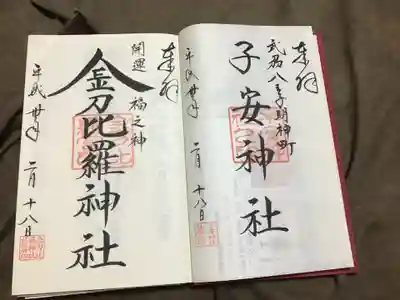 奉拝
武州八王子明神町
子安神社
平成三十年
二月十八日
奉拝
開運
福之神
金刀比羅神社
平成三十年
二月十八日